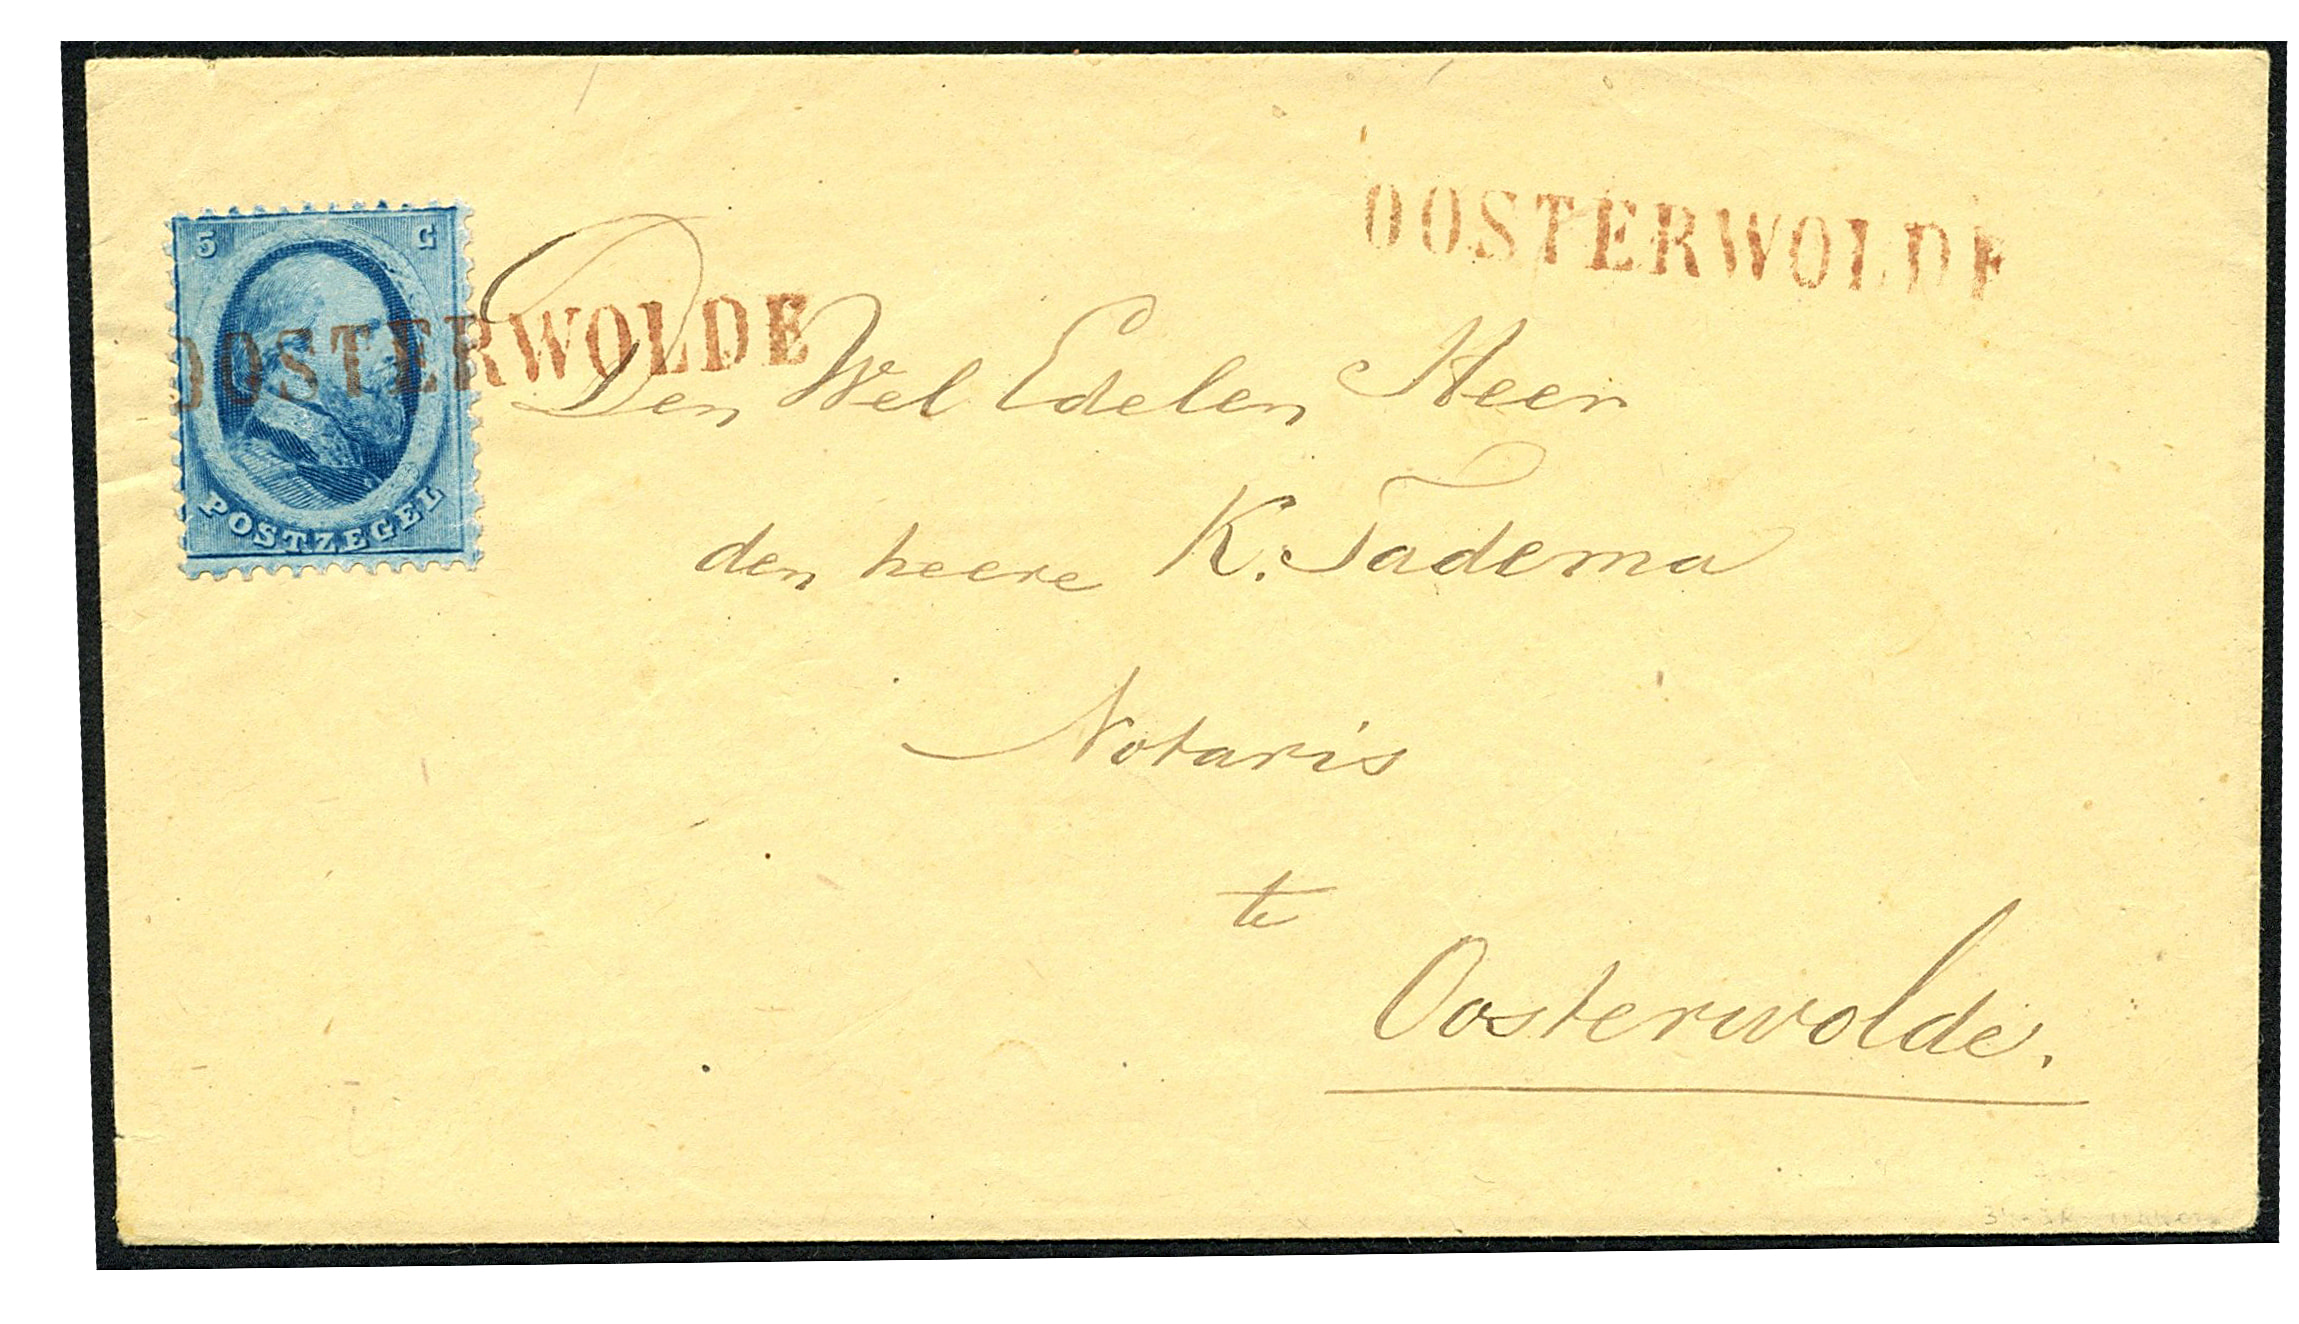 OOSTERWOLDE
5 C
OOSTERWOLDE
POSTZEGEL
Den Wel Edelen Heer
den heere K. Tadema
Notaris
te
Oosterwolde.